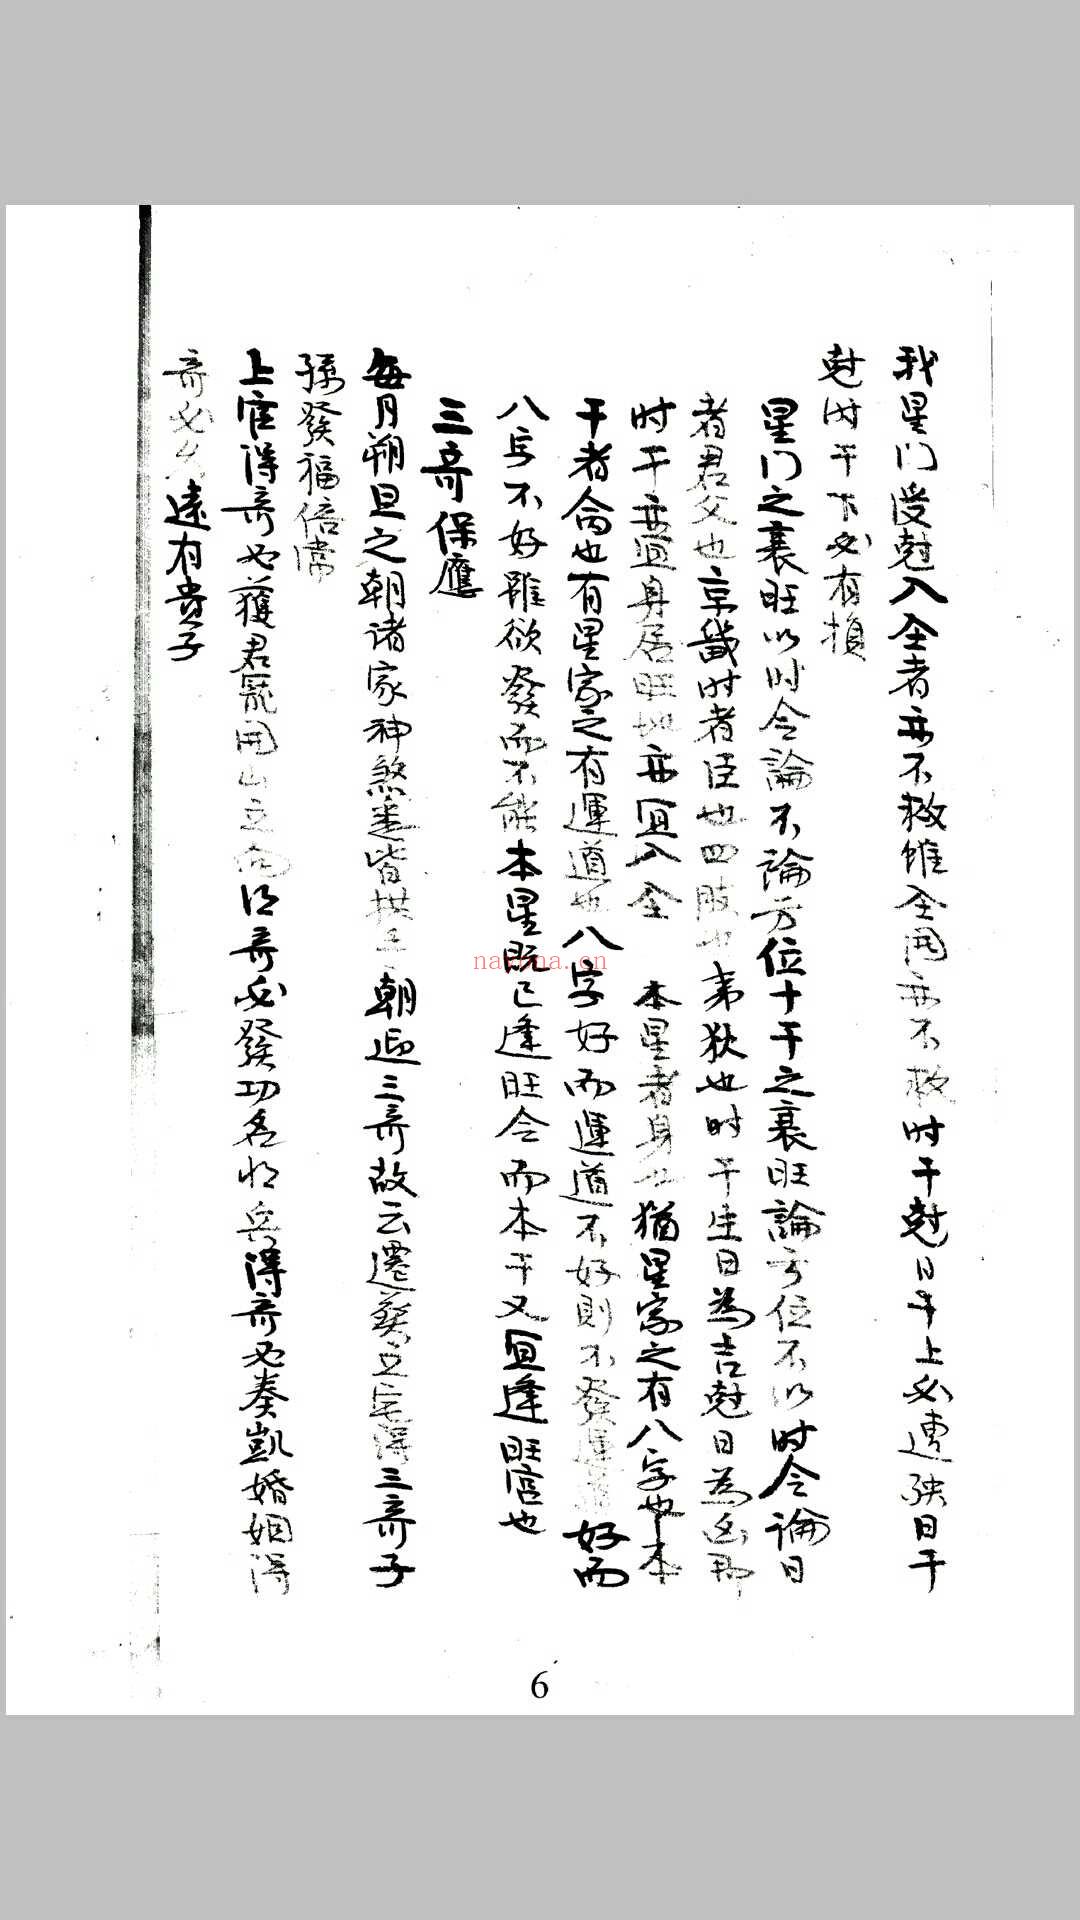 我星门受尅入仝者亦不救惟仝用亦不救时干尅日干上必遭殃日干
尅时干下必有損
星门之衰旺以时令論不論方位十干之衰旺論方位不以时令論日
者君父也京畿时者臣也四肢也夷狄也时干生日為吉尅日為凶那
时干亦宜身居旺地亦宜入仝 本星者身也猶星家之有八字也本
干者命也有星家之有運道也八字好而運道不好則不發運道好而
八字不好雖欲發而不能本星既已逢旺令而本干又宜逢旺宫也
三奇保應
每月朔旦之朝诸家神煞悉皆拱手朝迎三奇故云遷葵立宅得三奇子
孫發福倍常
上官得奇必獲君寵開山立向得奇必發功名将兵得奇必奏凱婚姻得
奇必 遠有貴子
nayona.cn
6